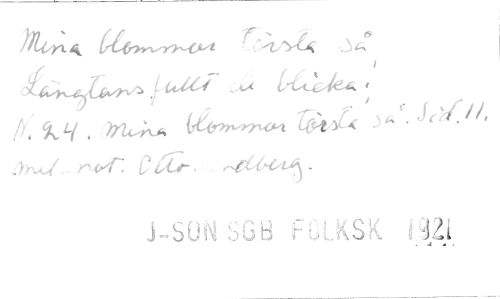 Mina blommor törsta så,
Längtansfullt de blicka;
N. 24. Mina blommor törsta så. Sid. 11.
mel. not. Otto ndberg.
J-SON SGB FOLKSK 1921